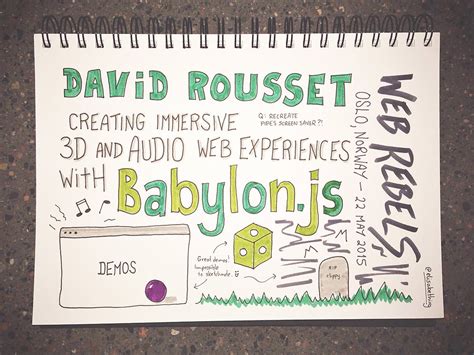 DAViD ROUSSET
CREATING IMMERSIVE
Q: RECREATE
PIPES SCREEN SAVER?!
3D AND AUDIO WEB EXPERIENCES
WitH Babylon.js
DEMOS
Great demos!
Impossible
to sketchnote
RIP
Clippy
WEB REBELS
OSLO, NORWAY - 22 MAY 2015